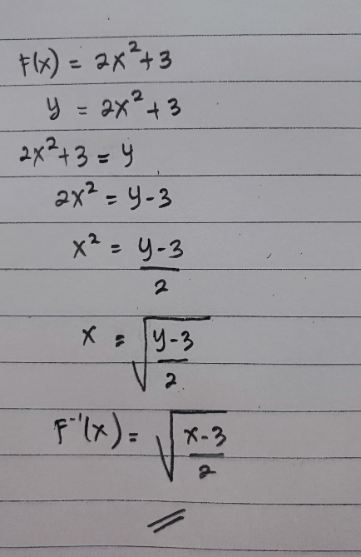 F(x) = 2x²+3
y = 2x²+3
2x²+3 = y
2x² = y-3
x² = y-3/2
x = √(y-3/2)
F⁻¹(x) = √(x-3/2)